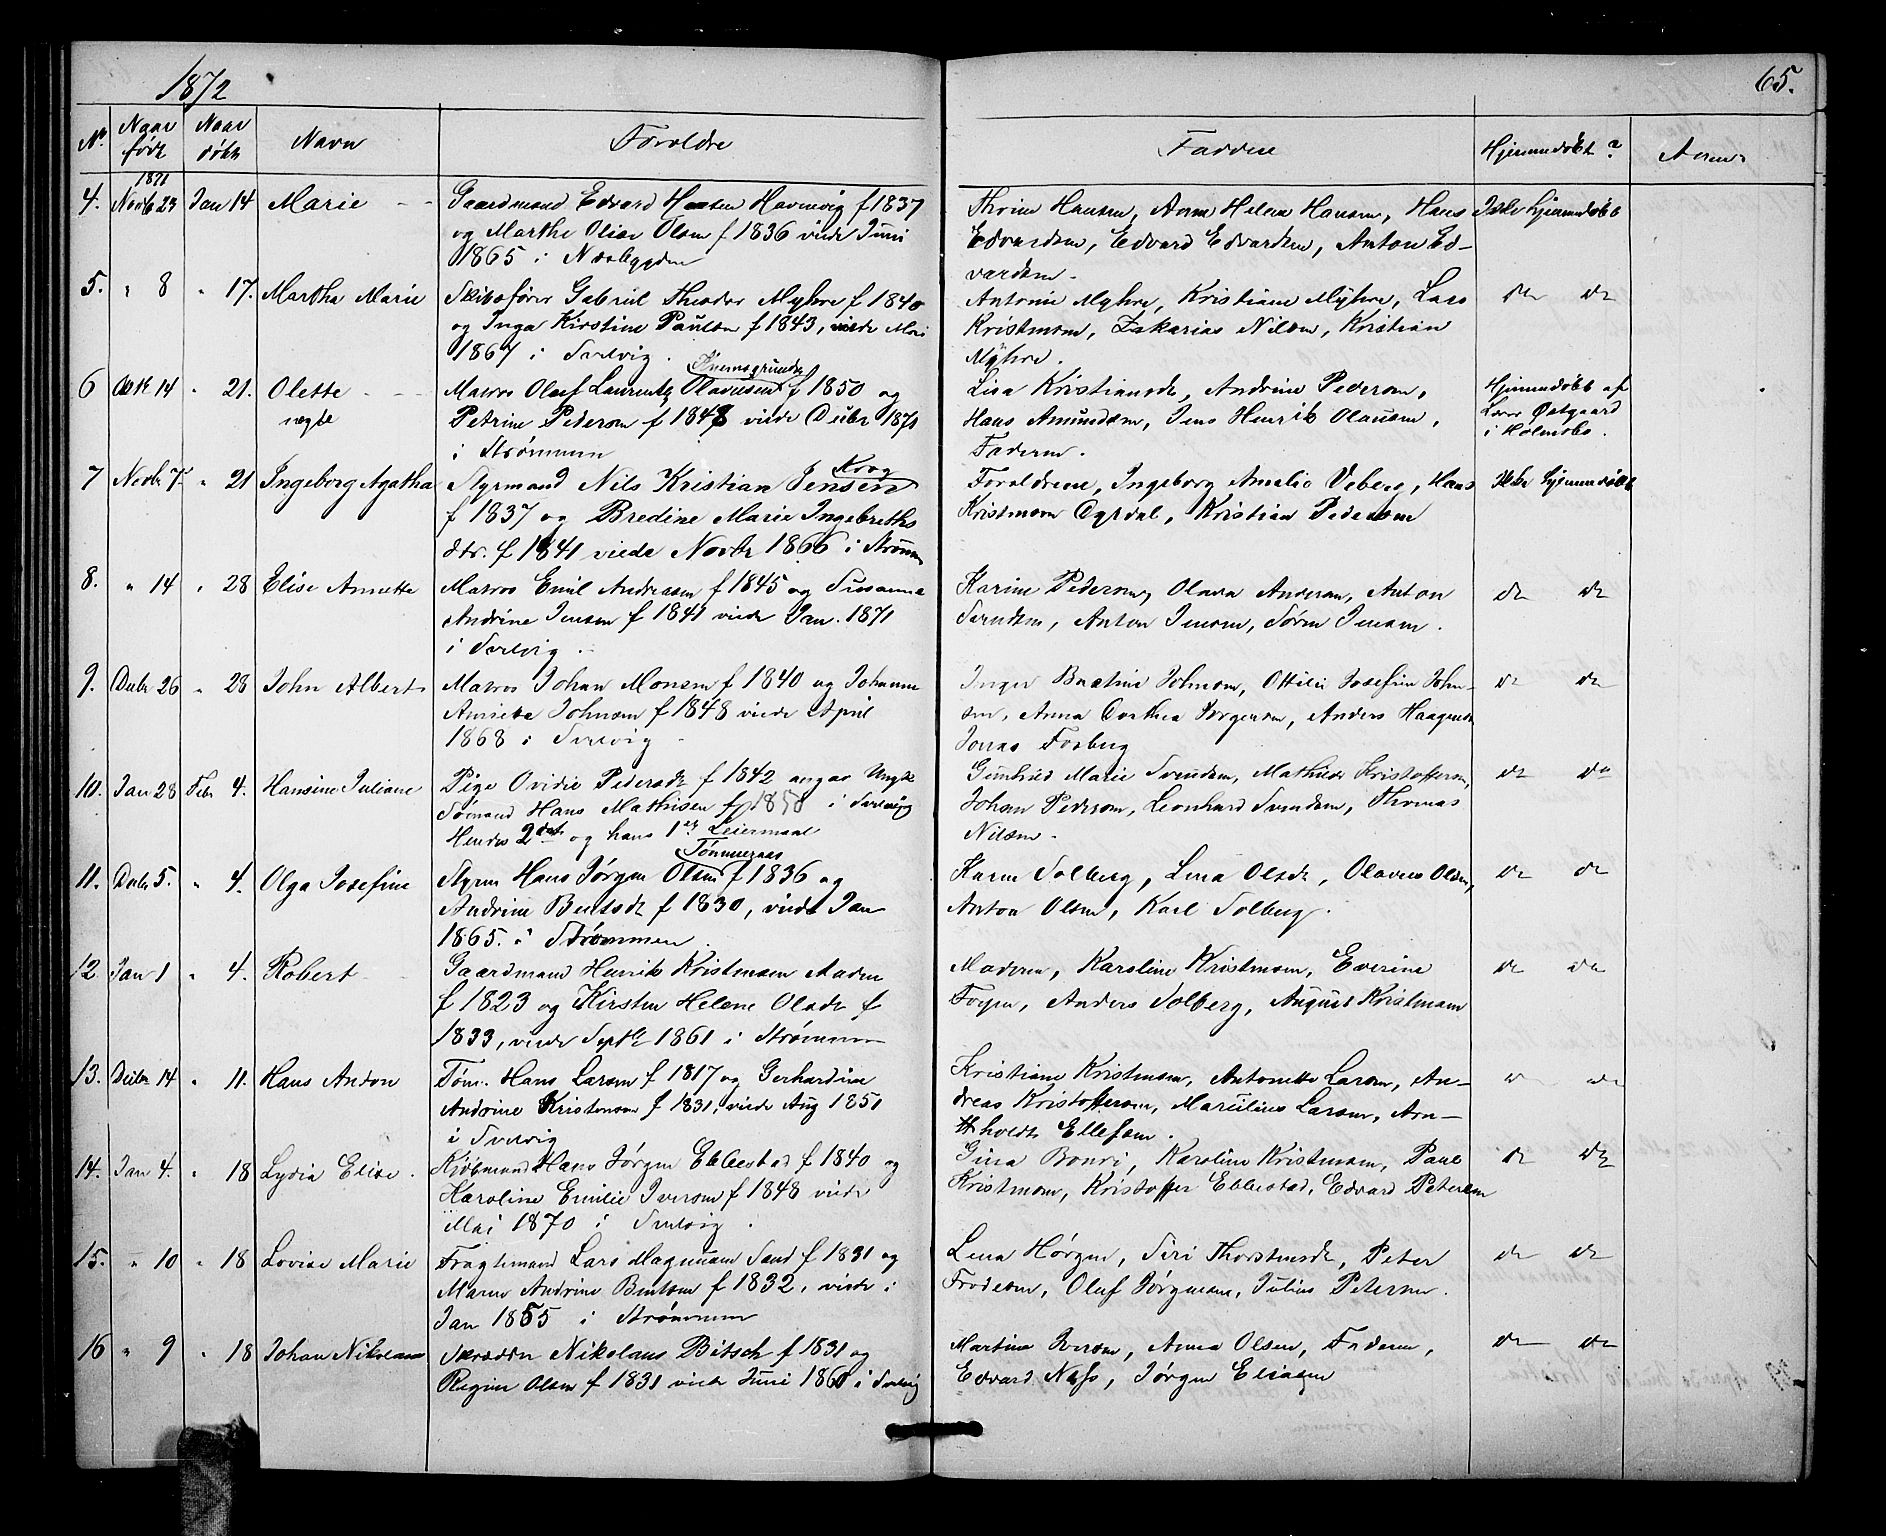 1872
65.
No Naar født Naar døbt Navn Forældre Faddere Hjemmedøbt? Anm.
1871
4. Novb 23 Jan 14 Marie Gaardmand Edvard Havnvig f 1837
og Marthe Olise Olsen f 1836 viede Juni
1865 i Næsbygden
Thrine Hansen, Anne Helene Hansen, Hans
Edvardsen, Edvard Edvardsen, Anton Ed-
vardsen.
Ikke hjemmedøbt
5. " 8 " 17. Martha Marie Skibsfører Gabriel Theodor Myhre f 1840
og Inga Kirstine Paulsen f 1843, viede Mai
1867 i Svelvig.
Antonie Myhre, Kristiane Myhre, Lars
Kristensen, Zakarias Nilsen, Kristian
Myhre.
do do
6 Okt 14 " 21. Olette Matros Oluf Laurentz Olavesen f 1850 og
ægte Petrine Pedersen f 1848 viede Decbr 1871
i Strømmen
Lisa Kristiansdt, Andrine Pedersen,
Hans Amundsen, Jens Henrik Olausen,
Faderen.
Hjemmedøbt af
Lærer Østgaard
i Holmsbo.
7 Novbr 7. " 21 Ingeborg Agatha Styrmand Nils Kristian Jensen Krog
f 1837 og Bredine Marie Ingebreths
dtr. f 1841 viede Novbr 1866 i Strømm
Forældrene, Ingeborg Amalie Veberg, Hans
Kristensen Dyrdal, Kristian Pedersen
Ikke hjemmedøbt
8. " 14 " 28 Elise Annette Matros Emil Andreasen f 1845 og Susanna
Andrine Jensen f 1841 viede Jan. 1871
i Svelvig.
Karine Pedersen, Olava Andersen, Anton
Svendsen, Anton Jensen, Søren Jensen.
do do
9. Decbr 26 " 28 John Albert Matros Johan Monsen f 1840 og Johanne
Annette Johnsen f 1848 viede April
1868 i Svelvig
Inger Bertine Johnsen, Ottilie Josefine John-
sen, Anna Dorthea Jørgensen, Anders Haagensen
Jonas Fosberg
do do
10. Jan 28 Febr 4. Hansine Juliane Pige Ovidie Pedersdt f 1842 angav Ungk
Sømand Hans Mathisen f 1850 i Svelvig
Hendes 2det og hans 1ste Leiermaal
Gunhild Marie Svendsen, Mathilde Kristoffersen,
Johan Pedersen, Leonhard Svendsen, Thomas
Nilsen.
do do
11. Decbr 5. " 4. Olga Josefine Styrm Hans Jørgen Olsen Tømmeraas f 1836 og
Andrine Bentsdt f 1830, viede Jan
1865. i Strømmen
Karen Solberg, Lena Olsdt, Olaves Olsen,
Anton Olsen, Karl Solberg.
do do
12 Jan 1 " 4. Robert Gaardmand Henrik Kristensen Aaden
f 1823 og Kirsten Helene Olsdt f
1833, viede Septbr 1861 i Strømmen
Moderen, Karoline Kristensen, Everine
Fogen, Anders Solberg, August Kristensen
do do
13. Decbr 14 " 11. Hans Anton Tøm. Hans Larsen f 1817 og Gerhardine
Andrine Kristensen f 1831, viede Aug 1851
i Svelvig
Kristiane Kristensen, Antonette Larsen, An-
dreas Kristoffersen, Marelius Larsen, Arn-
tholdt Ellefsen.
do do
14. Jan 4. " 18 Lydia Elise. Kjøbmand Hans Jørgen Ebbestad f 1840 og
Karoline Emilie Iversen f 1848 viede
Mai 1870 i Svelvig.
Gina Bonvi, Karoline Kristensen, Paul
Kristensen, Kristoffer Ebbestad, Edvard Petersen
do do
15. " 10 " 18 Lovise Marie Fragtemand Lars Magnusen Sand f 1831 og
Maren Andrine Bentsen f 1832, viede i
Jan 1855 i Strømmen
Lena Hørgen, Siri Thorstensdt, Peter
Frodesen, Oluf Jørgensen, Julius Petersen.
do do
16 " 9 " 18 Johan Nikolaus Skrædder Nikolaus Bitsch f 1831 og
Regine Olsen f 1831 viede Juni 1860 i Svelvig
Martina Iversen, Anna Olsen, Faderen,
Edvard Næss, Jørgen Eliasen
do do